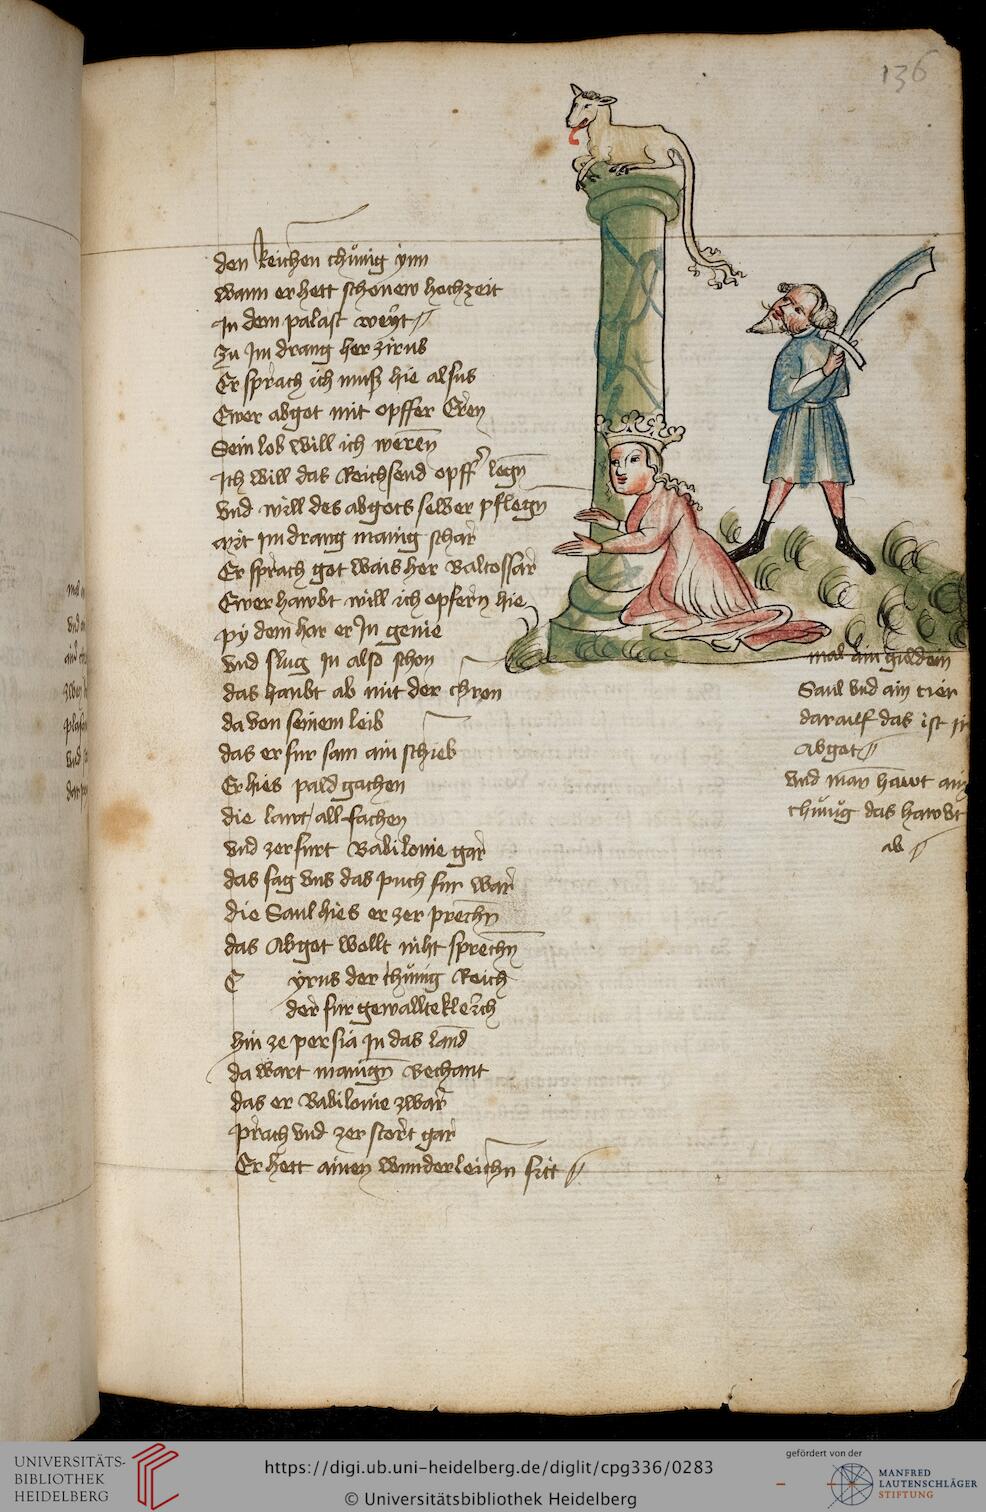 136
den Reichen chu̇nig ynn
wann er hett schonew hochzeit
In dem palast weyt
Zu Im drang her zirus
Er sprach ich muß hie alsus
Ewer abgot mit opffer Eren
Sein lob will ich weren
Ich will das Reichsend opffer legn
vnd will des abgots selber pflegn
mit Im drang manig schar
Er sprach got wais her Baltossar
Ewer hawbt will ich opfern hie
py dem har er In genie
vnd slug In also schon
das haubt ab mit der chron
da von seinem leib
das er fur sam ain schieb
Er hies pald gachen
die lawt all fachen
vnd zerfurt Babilonie gar
das sag vns das puch fur war
die Saul hies er zer prechn
das Abgot wollt niht sprechn
Cyrus der chu̇nig Reich
der fur gewallte
hin ze persia In das land
da wart manign bechant
das er Babilonie zwar
prach vnd zer stort gar
Er hett ainen wunderleichn sitt
mal ain guldein
Saul vnd ain tier
darauf das ist ir
Abgot
vnd man hawt ain
chu̇nig das hawbt
ab
UNIVERSITÄTS-
BIBLIOTHEK
HEIDELBERG
https://digi.ub.uni-heidelberg.de/diglit/cpg336/0283
© Universitätsbibliothek Heidelberg
gefördert von der
MANFRED
LAUTENSCHLÄGER
STIFTUNG